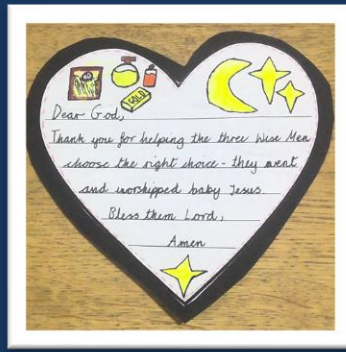 GOLD
Dear God,
Thank you for helping the three Wise Men
choose the right choice - they went
and worshipped baby Jesus.
Bless them Lord,
Amen